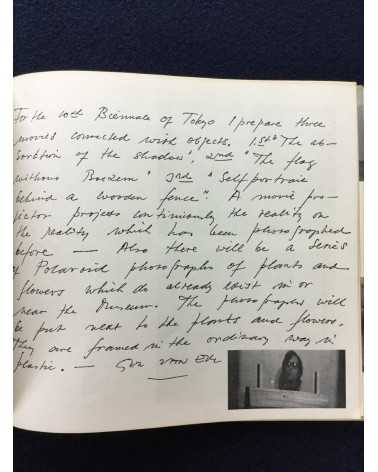 For the 10th Biennale of Tokyo I prepare three
movies connected with objects. 1st "The ab-
sorbtion of the shadow", 2nd "The flag
without Breeze" 3rd "Self portrait
behind a wooden fence". A movie pro-
jector projects continiously the reality on
the reality which has been photographed
before — Also there will be a series
of Polaroid photographs of plants and
flowers which do already exist in or
near the Museum. The photographs will
be put next to the plants and flowers.
They are framed in the ordinary way in
plastic. — Ger van Elk